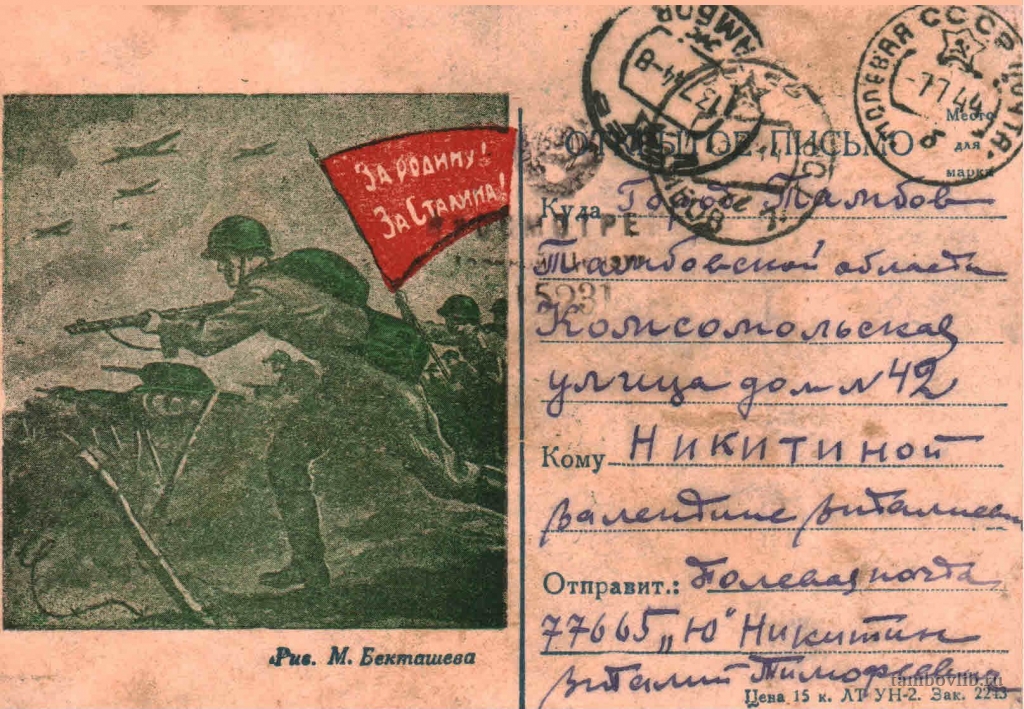 За Родину!
За Сталина!
Рис. М. Бекташева
ТАМБОВ
ПОЛЕВАЯ ПОЧТА
СССР
-7 7 44
Место
для
марки
ОТКРЫТОЕ ПИСЬМО
Куда Город Тамбов
Тамбовской области
5231
Комсомольская
улица дом N 42
Кому НИКИТИНОЙ
Валентине Витальевн
Отправит.: Полевая почта
77665 „Ю" Никитин
Виталий Тимофеевич
tambovlib.ru
Цена 15 к. ЛТ УН-2. Зак. 2243